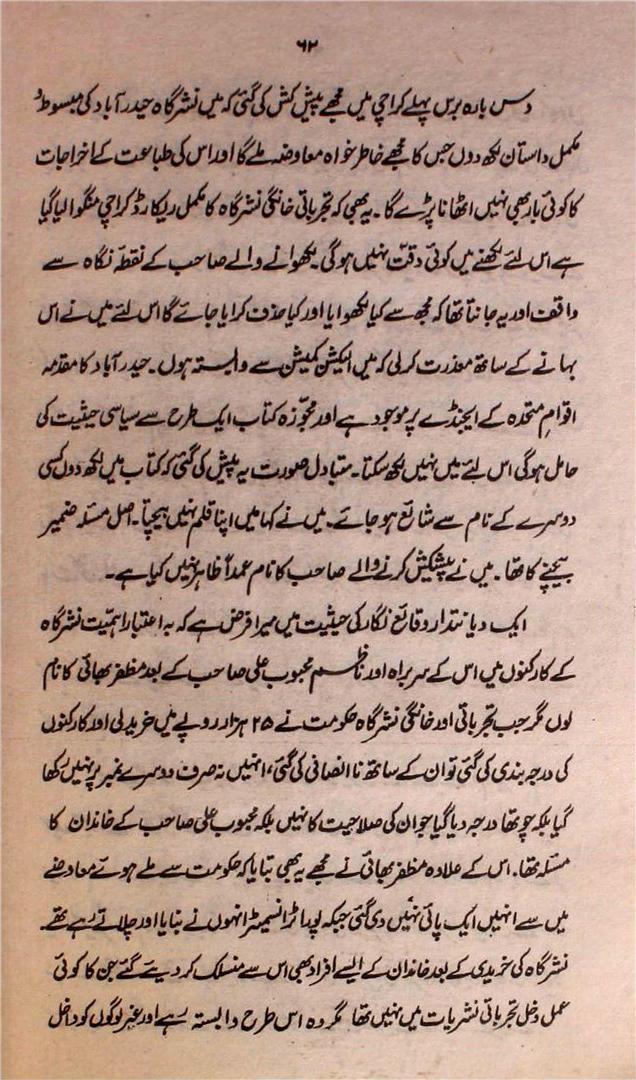 ۶۲
دس بارہ برس پہلے کراچی میں مجھے پیش کش کی گئی کہ میں نشرگاہ حیدرآباد کی مبسوط و
مکمل داستان لکھ دوں جس کا مجھے خاطر خواہ معاوضہ ملے گا اور اس کی طباعت کے اخراجات
کا کوئی بار بھی نہیں اٹھانا پڑے گا۔ یہ بھی کہ تجرباتی خانگی نشرگاہ کا مکمل ریکارڈ کراچی منگوا لیا گیا
ہے اس لئے لکھنے میں کوئی دقّت نہیں ہو گی۔ لکھوانے والے صاحب کے نقطۂ نگاہ سے
واقف اور یہ جانتا تھا کہ مجھ سے کیا لکھوایا اور کیا حذف کرایا جائے گا اس لئے میں نے اس
بہانے کے ساتھ معذرت کر لی کہ میں الیکشن کمیشن سے وابستہ ہوں۔ حیدرآباد کا مقدمہ
اقوامِ متحدہ کے ایجنڈے پر موجود ہے اور مجوّزہ کتاب ایک طرح سے سیاسی حیثیت کی
حامل ہو گی اس لئے میں نہیں لکھ سکتا۔ متبادل صورت یہ پیش کی گئی کہ کتاب میں لکھ دوں کسی
دوسرے کے نام سے شائع ہو جائے۔ میں نے کہا میں اپنا قلم نہیں بیچتا۔ اصل مسئلہ ضمیر
بیچنے کا تھا۔ میں نے پیشکش کرنے والے صاحب کا نام عمداً ظاہر نہیں کیا ہے۔
ایک دیانتدار وقائع نگار کی حیثیت میں میرا فرض ہے کہ بہ اعتبارِ اہمیت نشرگاہ
کے کارکنوں میں اس کے سربراہ اور ناظم محبوب علی صاحب کے بعد مظفر بھائی کا نام
لوں مگر جب تجرباتی اور خانگی نشرگاہ حکومت نے ۲۵ ہزار روپے میں خرید لی اور کارکنوں
کی درجہ بندی کی گئی تو ان کے ساتھ ناانصافی کی گئی، انہیں نہ صرف دوسرے نمبر پر نہیں رکھا
گیا بلکہ چوتھا درجہ دیا گیا جو ان کی صلاحیت کا نہیں بلکہ محبوب علی صاحب کے خاندان کا
مسئلہ تھا۔ اس کے علاوہ مظفر بھائی نے مجھے یہ بھی بتایا کہ حکومت سے ملے ہوئے معاوضے
میں سے انہیں ایک پائی نہیں دی گئی جبکہ پورا ٹرانسمیٹر انہوں نے بنایا اور چلاتے رہے تھے۔
نشرگاہ کی خریدی کے بعد خاندان کے ایسے افراد بھی اس سے منسلک کر دیئے گئے جن کا کوئی
عمل دخل تجرباتی نشریات میں نہیں تھا مگر وہ اس طرح وابستہ رہے اور غیر لوگوں کو داخل